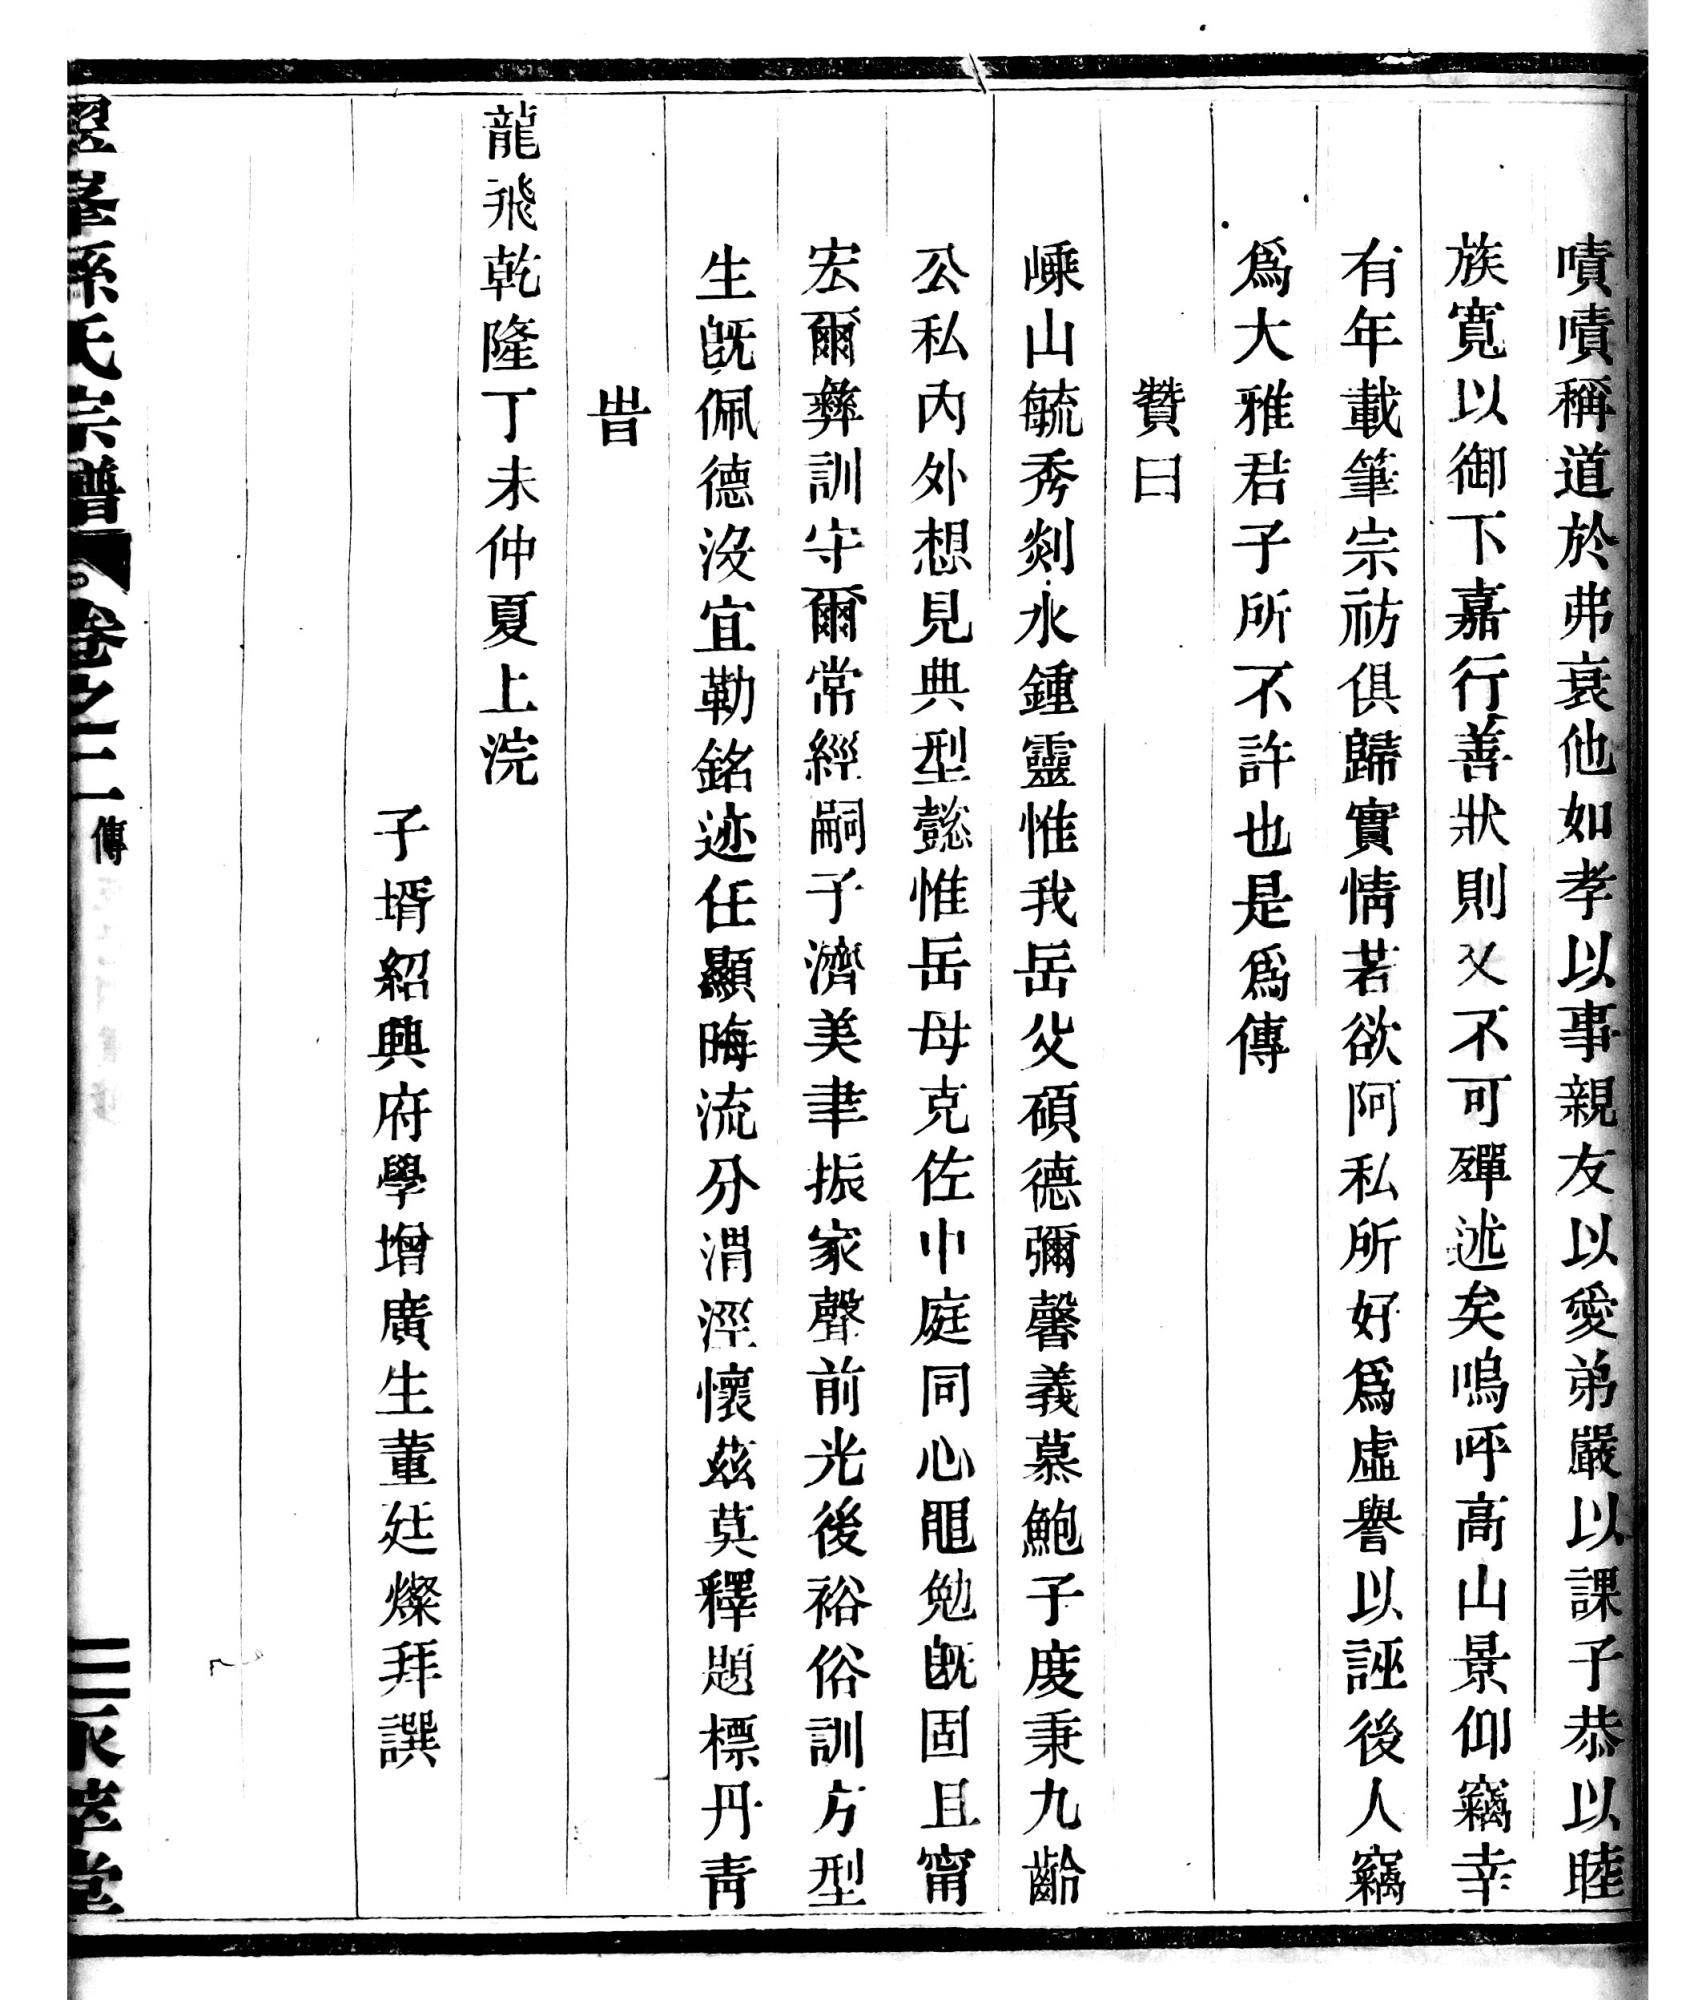 嘖嘖稱道於弗衰他如孝以事親友以愛弟嚴以課子恭以睦
族寬以御下嘉行善狀則又不可殫述矣嗚呼高山景仰竊幸
有年載筆宗祊俱歸實情若欲阿私所好爲虛譽以誣後人竊
爲大雅君子所不許也是爲傳
贊曰
嵊山毓秀剡水鍾靈惟我岳父碩德彌馨義慕鮑子度秉九齡
公私內外想見典型懿惟岳母克佐中庭同心黽勉旣固且甯
宏爾彝訓守爾常經嗣子濟美聿振家聲前光後裕俗訓方型
生旣佩德沒宜勒銘迹任顯晦流分渭涇懷茲莫釋題標丹靑
旹
龍飛乾隆丁未仲夏上浣
子壻紹興府學增廣生董廷燦拜譔
峯孫氏宗譜 卷之二 傳 二 萃堂